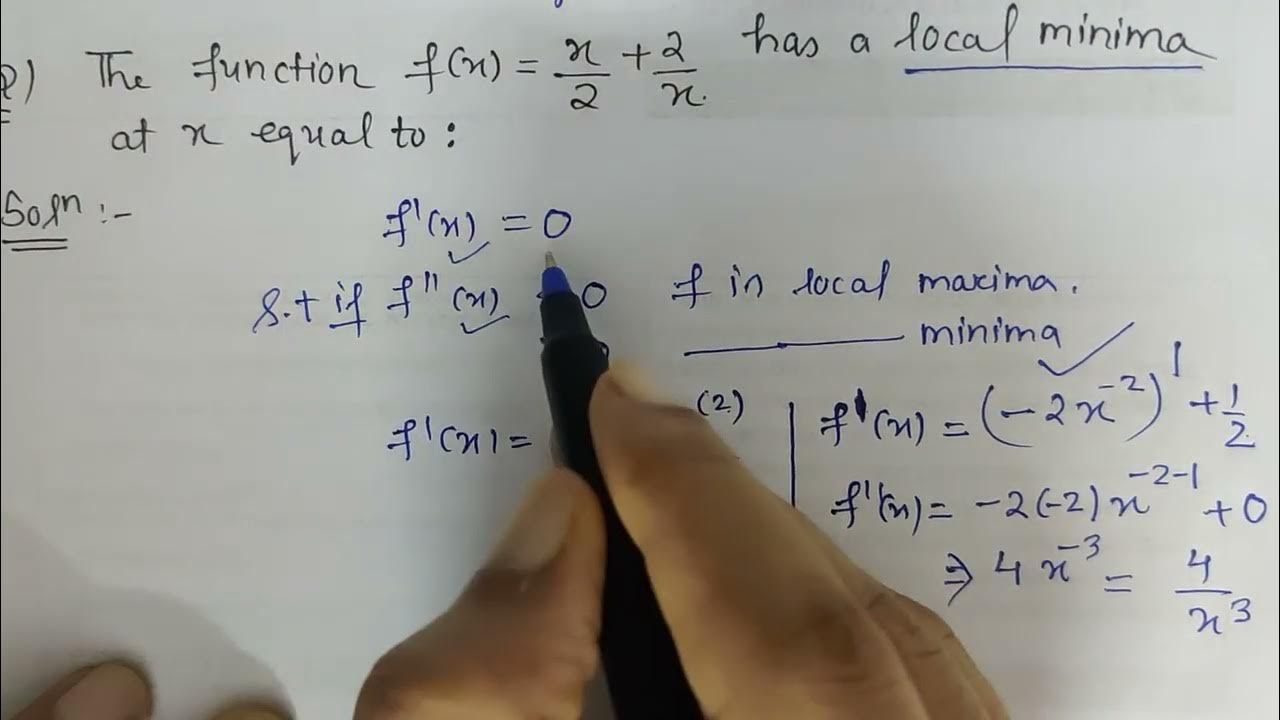 The function f(x) = x/2 + 2/x has a local minima
at x equal to :
Solⁿ :-
f'(x) = 0
S.t if f''(x) 0 f in local maxima.
minima
f'(x) = (2)
f'(x) = (-2x⁻²)' + 1/2
f''(x) = -2(-2)x⁻²⁻¹ + 0
⇒ 4x⁻³ = 4/x³